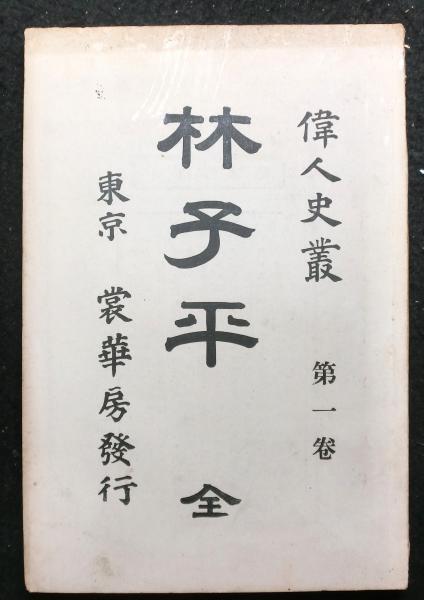 偉人史叢 第一卷
林子平 全
東京 裳華房發行